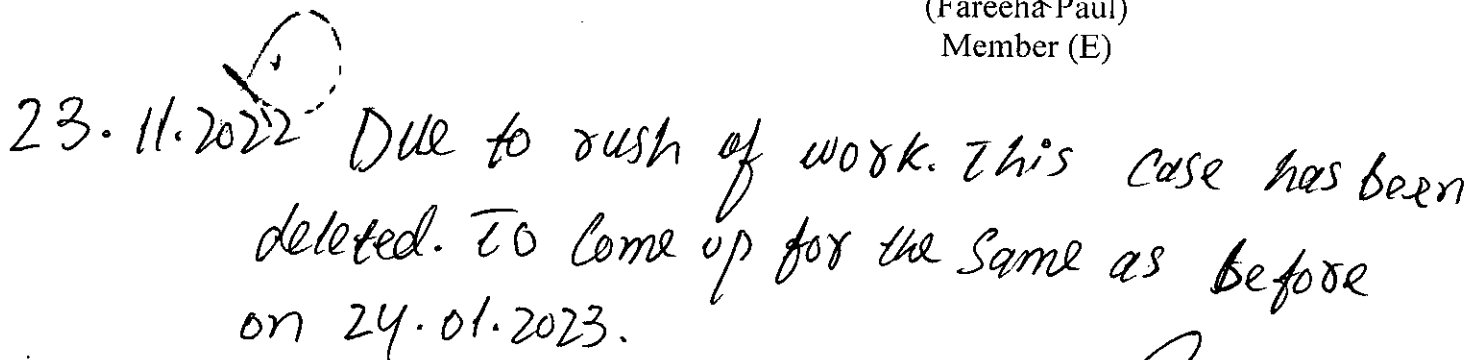 (Fareeha Paul)
Member (E)
23.11.2022 Due to rush of work. This case has been
deleted. To Come up for the Same as before
on 24.01.2023.